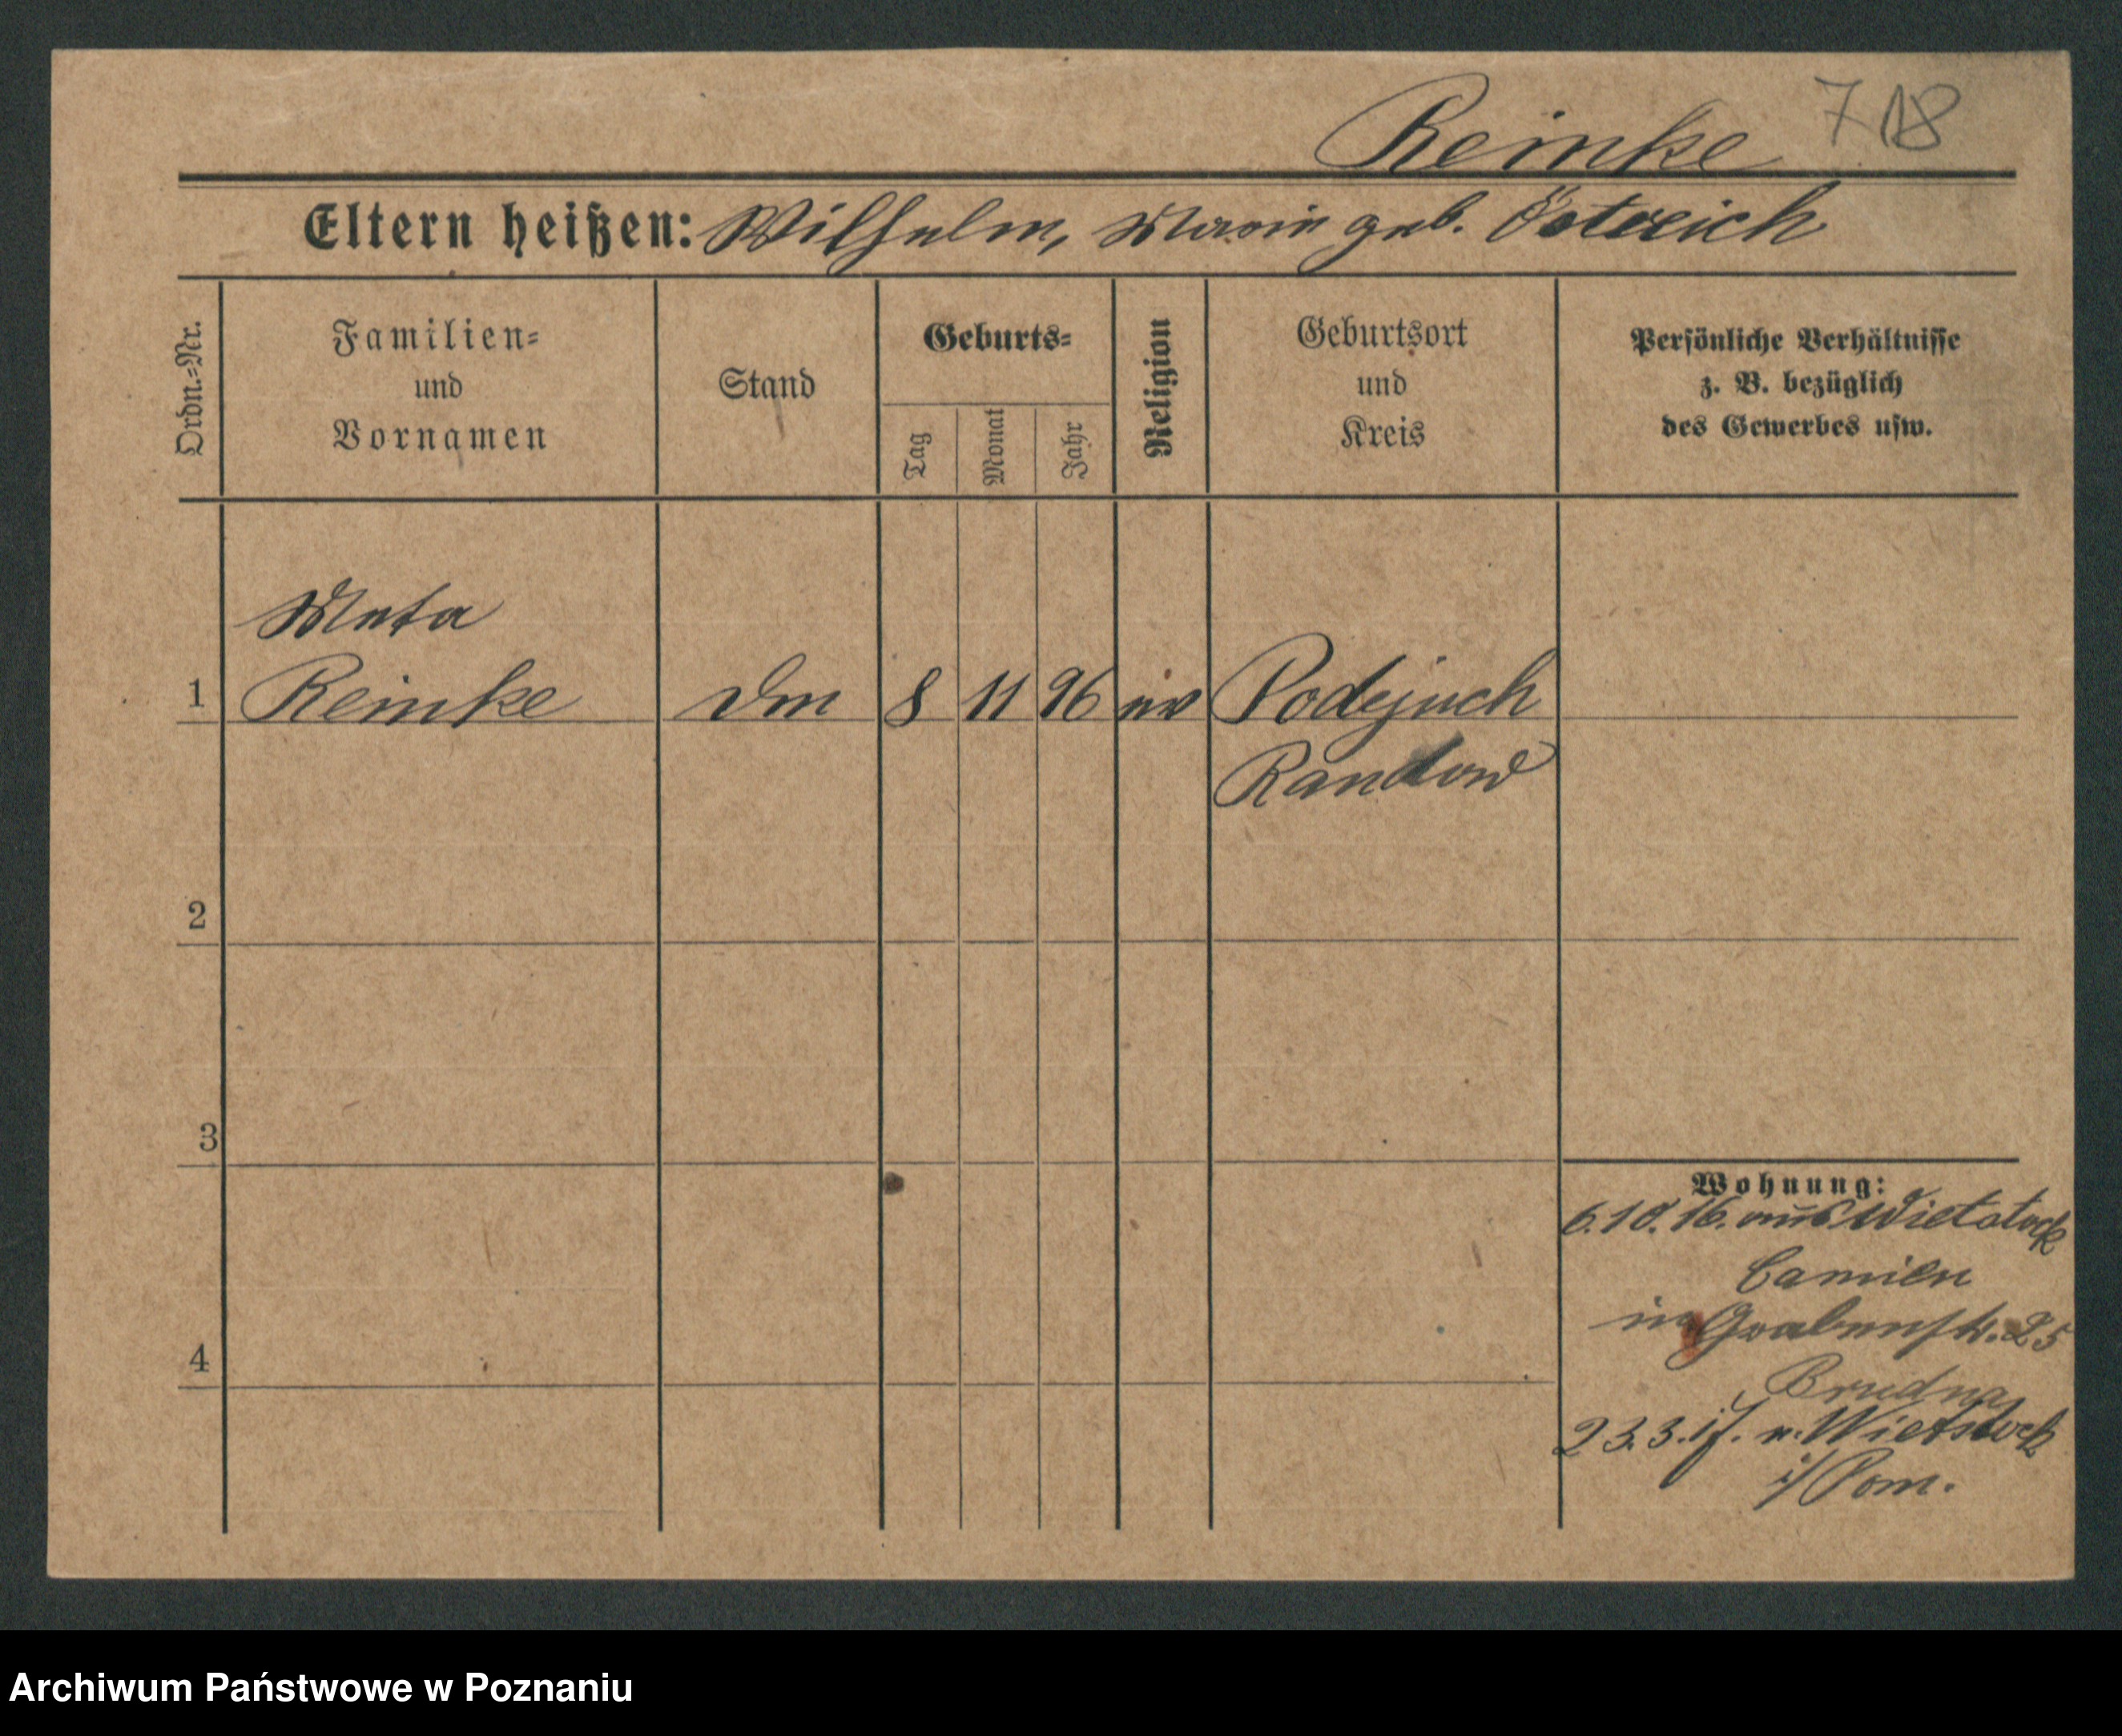 Reinke 718
Eltern heißen: Wilhelm, Marie geb. Östreich
Ordn.-Nr.
Familien-
und
Vornamen
Stand
Geburts-
Tag
Monat
Jahr
Religion
Geburtsort
und
Kreis
Persönliche Verhältnisse
z. B. bezüglich
des Gewerbes usw.
Meta
1 Reinke 8 11 96 ev Podejuch
Randow
2
3
4
Wohnung:
6.10.16. aus Wietstock
Camin
in Grabenstr. 25
23.3.17. n. Wietstock
i/Pom.
Archiwum Państwowe w Poznaniu